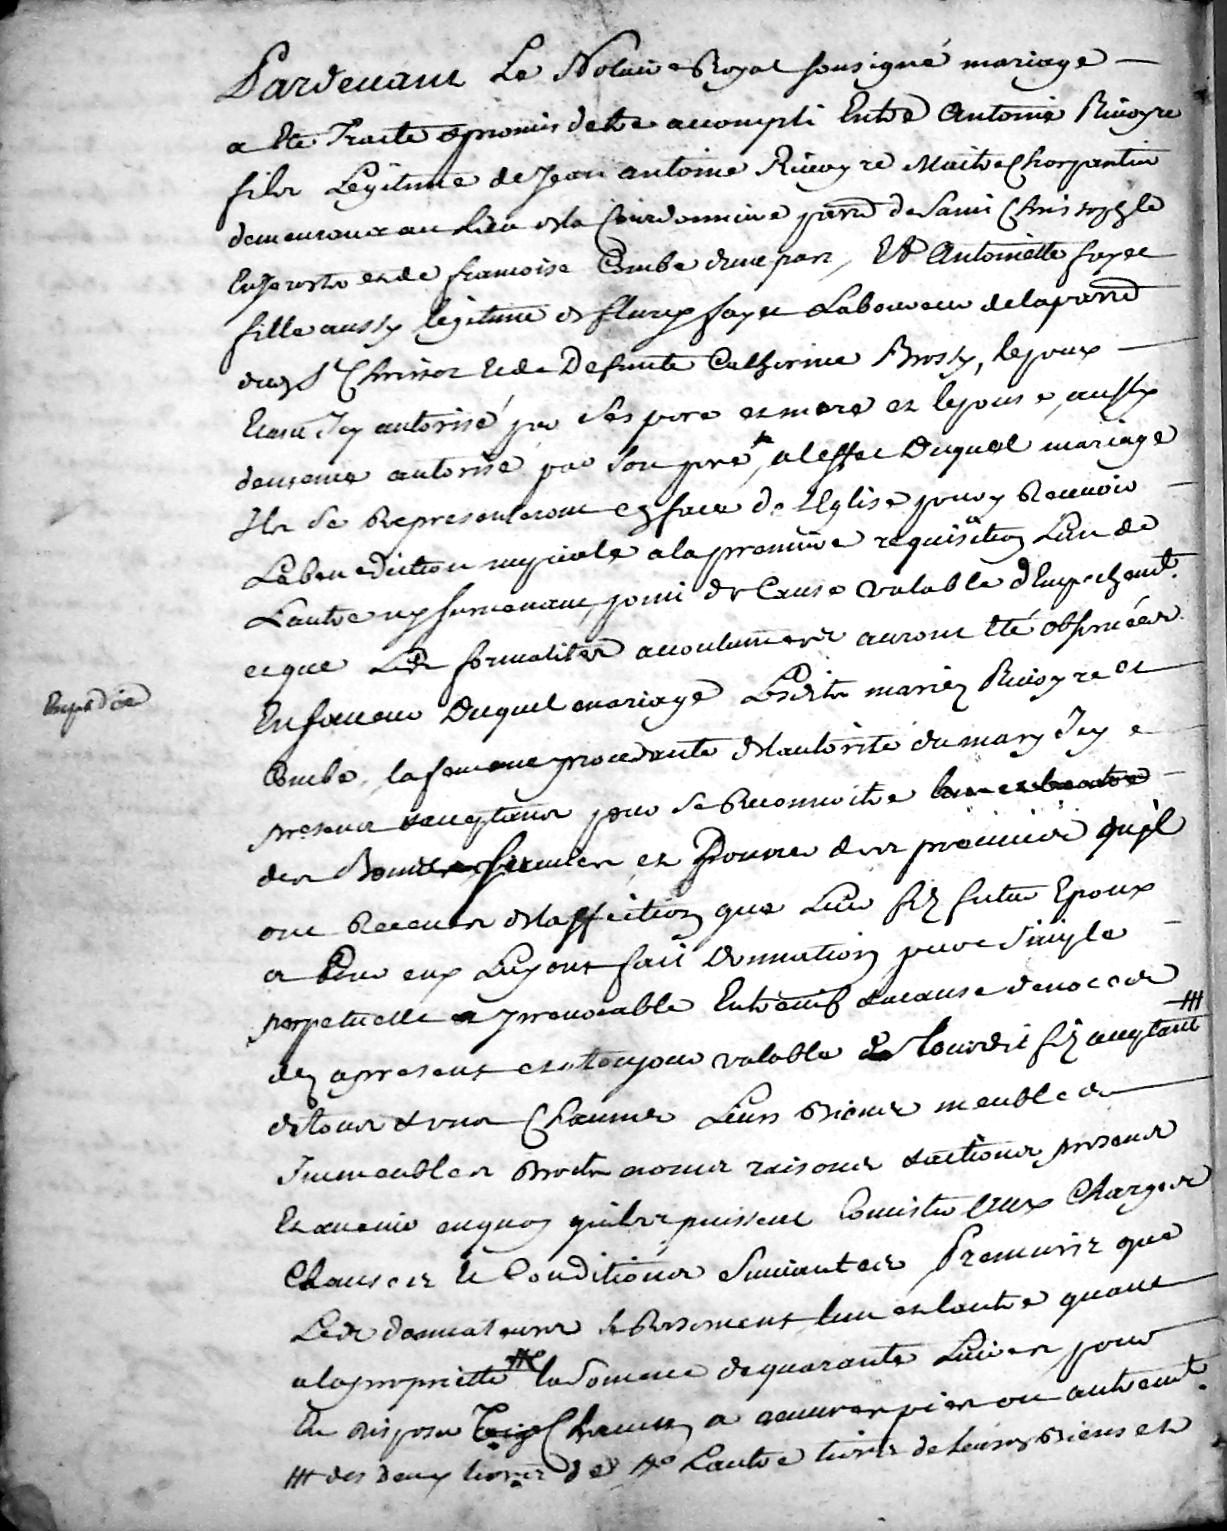 Pardevant Le Notaire Royal sousigné mariage
a Ete Traite & promis detre accompli Entre Antoine Rivoyre
fils Legitime de Jean antoine Rivoyre Maitre Charpantier
demeurant au Lieu de la parr de Saint Christophle
En Jarests et de francoise Combe dune part, Et Antoinette fayet
fille aussy legitime de fleury fayet Laboureur de la parr
dud St Christo et de Defunte Catherine Brossy, lepoux
Etant Icy autorisé par Ses pere et mere et lepouse aussy
deuxeme autorisé par Son pere, a leffet Duquel mariage
Ils Se Representeront en face de LEglise pour y Recevoir
La benediction nuptiale a la premiere requisition Lun de
Lautre ny survenant point de Cause valable dEmpechemt.
et que Les formalites accoutumees auront Eté observées
En faveur Duquel mariage Lesdits mariez Rivoyre et
Combe, la femme procedante de lautorite du mary Icy
present & acceptant pour Se Reconnoitre
des Bons services et Preuves des premieres quil
ont Receues de laffection que Leur fiz futur Epoux
a Pour eux Luy ont fait Donnation pure Simple
perpetuelle & yrrevocable Entrevifs & a cause de noces
dez apresent et a toujour valable a leurdit fiz acceptant ///
de tous & uns Chacuns Leurs Biens meubles
Immeubles Droits noms raisons & actions presents
Et avenir en quoy quils puissent Consister Aux Charges
Clauses et Conditions Suivantes Premierts que
Les donnateurs se Reservent lun et lautre quant
a la proprietté la Somme de quarante Livres pour
En disposer Chacun a oeuvres pies ou autremt.
/// des deux tiers de Lautre tiers de leursd Biens et
Expediée